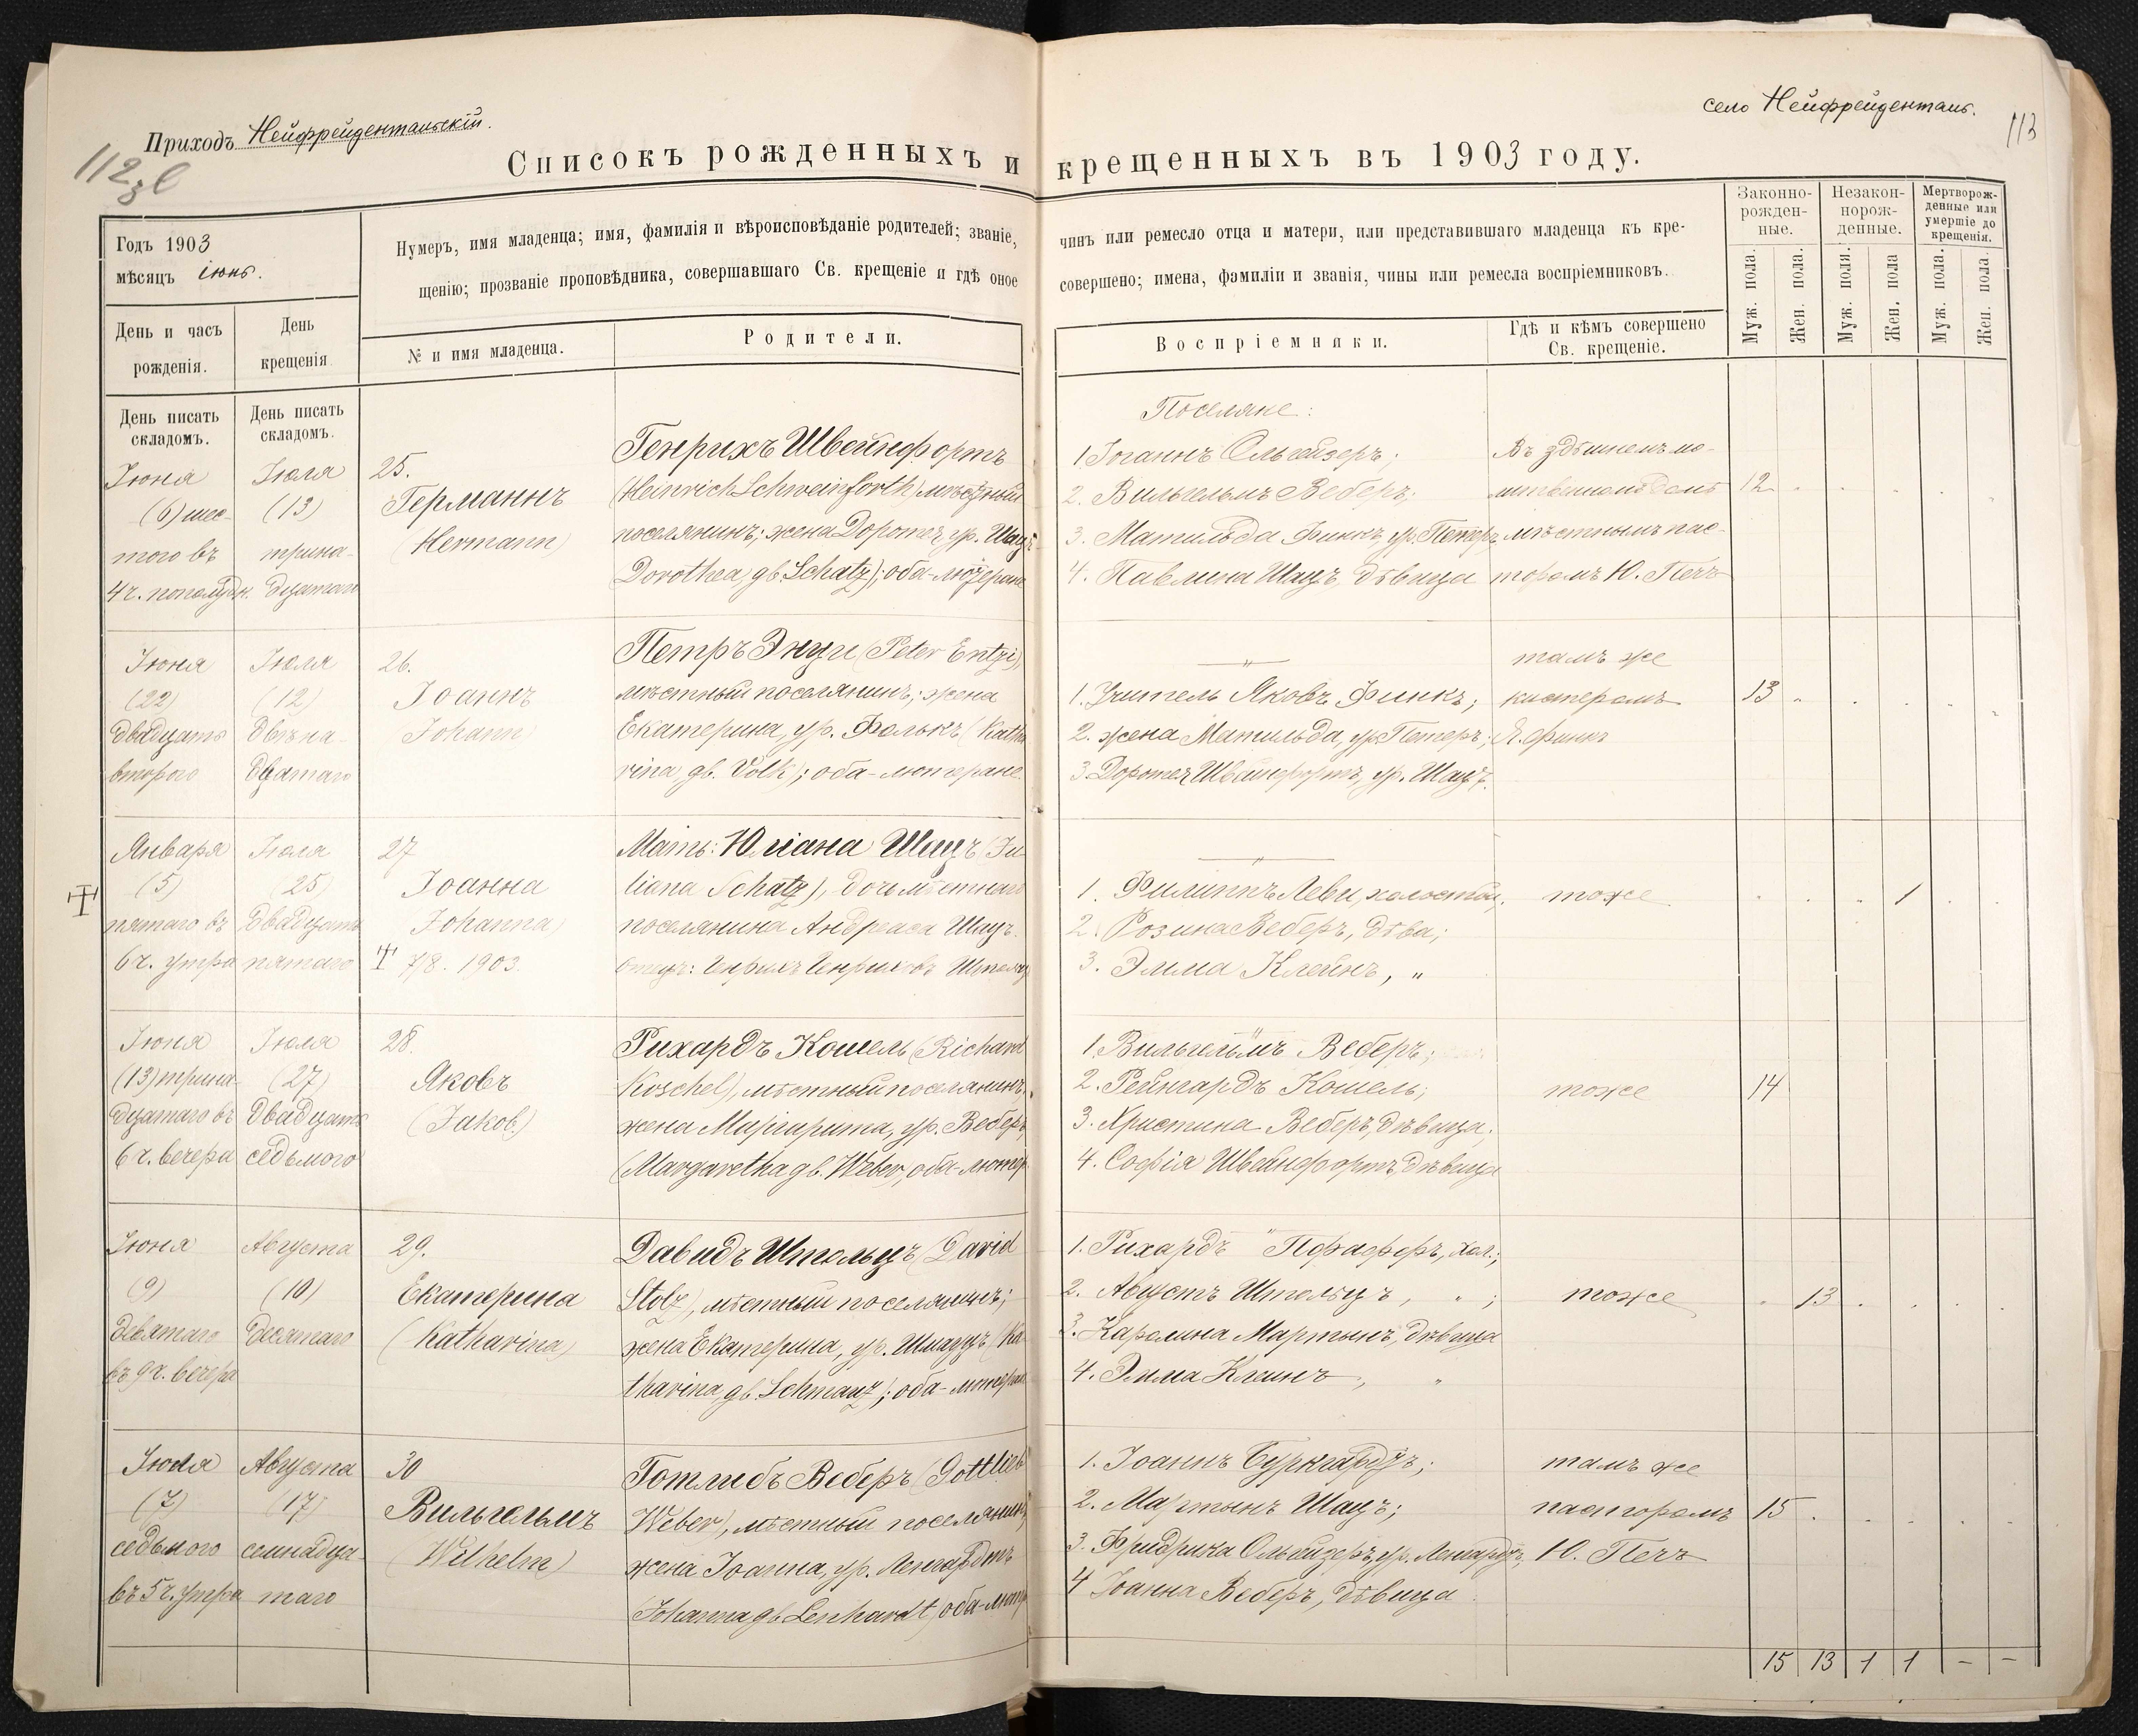 Приходъ Нейфрейдентальскій.
село Нейфрейденталь.
112 зв
113
Списокъ рожденныхъ и крещенныхъ въ 1903 году.
Годъ 1903
мѣсяцъ іюнь.
Нумеръ, имя младенца; имя, фамилія и вѣроисповѣданіе родителей; званіе, чинъ или ремесло отца и матери, или представившаго младенца къ кре-
щенію; прозваніе проповѣдника, совершавшаго Св. крещеніе и гдѣ оное совершено; имена, фэмиліи и званія, чины или ремесла воспріемниковъ.
Законно-
рожден-
ные.
Незакон-
норож-
денные.
Мертворож-
денные или
умершіе до
крещенія.
Муж. пола.
Жен. пола.
Муж. пола.
Жен. пола
Муж. пола.
Жен. пола.
День и часъ
рожденія.
День
крещенія
№ и имя младенца.
Родители.
Воспріемники.
Гдѣ и кѣмъ совершено
Св. крещеніе.
День писать
складомъ.
День писать
складомъ.
Іюня
(6) шес-
того въ
4 ч. пополудн.
Іюля
(13)
трина-
дцатаго
25.
Германнъ
(Hermann)
Генрихъ Швейнфортъ
(Heinrich Schweinforth) мѣстный
поселянинъ; жена Доротея ур. Шацъ
Dorothea, gb. Schatz); оба-лютеране
Поселяне:
1. Іоганнъ Ольгейзеръ;
2. Вильгельмъ Веберъ;
3. Матильда Финкъ, ур. Петеръ
4. Павлина Шацъ, дѣвица
Въ здѣшнемъ мо-
литвенномъ домѣ
мѣстнымъ пас-
торомъ Ю. Печъ
12
Іюня
(22)
двадцать
второго
Іюля
(12)
двѣна-
дцатаго
26.
Іоаннъ
Johann)
Петръ Энци (Peter Entzi),
мѣстный поселянинъ; жена
Екатерина, ур. Фолькъ (Katha
rina, gb. Volk); оба-лютеране.
"
1. Учитель Яковъ Финкъ;
2. жена Матильда, ур. Петеръ;
3. Доротея Швейнфортъ, ур. Шацъ.
тамъ же
кистеромъ
Я. Финкъ
13
Января
(5)
пятаго въ
6 ч. утра
Іюля
(25)
двадцать
пятаго
27
Іоанна
Johanna)
7/8. 1903.
Мать: Юліана Шацъ (Ju
liana Schatz), дочь мѣстнаго
поселянина Андреаса Шацъ.
отецъ: Генрихъ Генриховъ Штольцъ
"
1. Филиппъ Леви, холостой;
2. Розина Веберъ, дѣва;
3. Эмма Клейнъ, "
тоже
1
Іюня
(13) трина-
дцатаго въ
6 ч. вечера
Іюля
(27)
двадцать
седьмого
28.
Яковъ
(Jakob)
Рихардъ Кошель (Richard
Koschel), мѣстный поселянинъ,
жена Маргарита, ур. Веберъ
(Margaretha gb. Weber, оба-лютер.
"
1. Вильгельмъ Веберъ;
2. Рейнгардъ Кошель;
3. Христина Веберъ, дѣвица;
4. Софія Швейнфортъ, дѣвица
тоже
14
Іюня
(9)
девятаго
въ 9 ч. вечера
Августа
(10)
десятаго
29.
Екатерина
(Katharina)
Давидъ Штольцъ (David
Stolz), мѣстный поселянинъ;
жена Екатерина, ур. Шмауцъ (Ka
tharina, gb. Schmauz); оба-лютеран
"
1. Рихардъ Пфафферъ, хол.;
2. Августъ Штольцъ, " ;
3. Каролина Мартынъ, дѣвица
4. Эмма Клейнъ, "
тоже
13
Іюля
(7)
седьмого
въ 5 ч. утра
Августа
(17)
семнадца-
таго
30
Вильгельмъ
(Wilhelm)
Готлибъ Веберъ (Gottlieb
Weber), мѣстный поселянинъ;
жена Іоанна, ур. Ленгардтъ
(Johanna gb Lenhardt) оба-лютр
1. Іоаннъ Бургардтъ;
2. Мартынъ Шацъ;
3. Фридрика Ольгейзеръ, ур. Ленгардтъ;
4 Іоанна Веберъ, дѣвица
тамъ же
пасторомъ
Ю. Печъ
15
15 13 1 1 - -